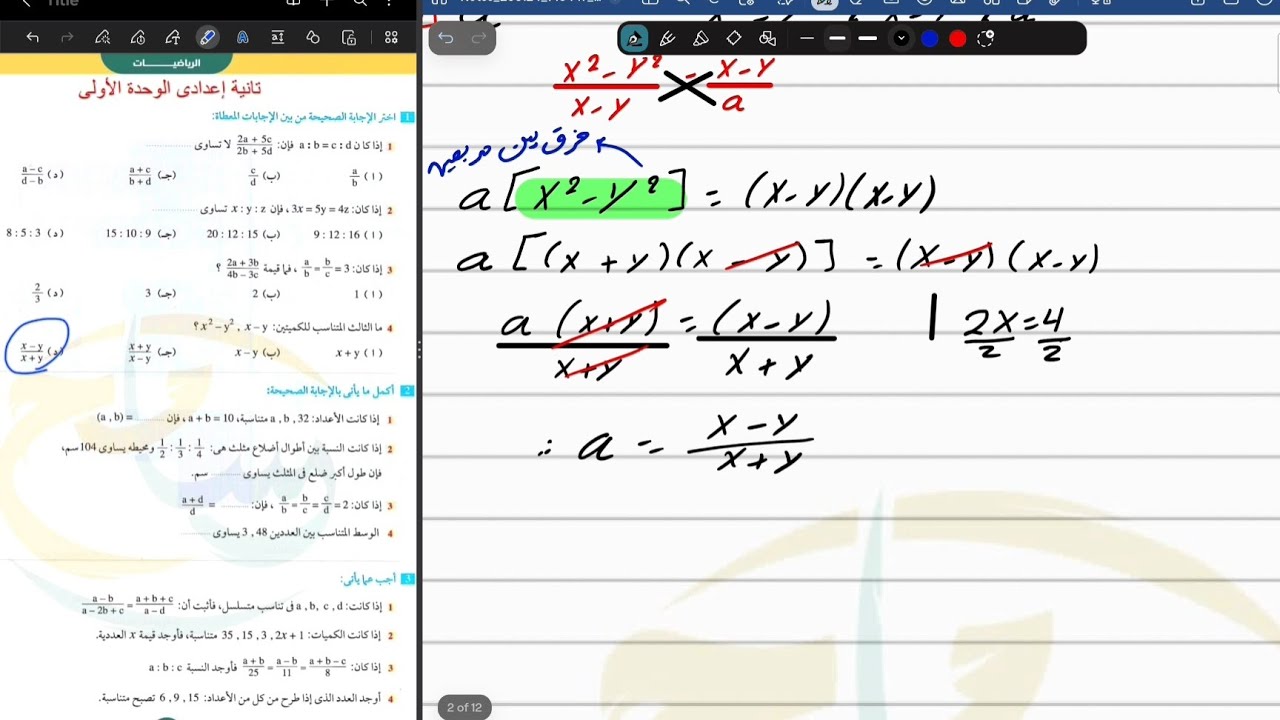 Title
الرياضيــــــات
ثانية إعدادى الوحدة الأولى
1 اختر الإجابة الصحيحة من بين الإجابات المعطاة:
1 إذا كان a : b = c : d فإن: (2a + 5c)/(2b + 5d) لا تساوى ..............
(أ) a/b (ب) c/d (جـ) (a + c)/(b + d) (د) (a − c)/(d − b)
2 إذا كان: 3x = 5y = 4z، فإن x : y : z تساوى ..............
(أ) 9 : 12 : 16 (ب) 20 : 12 : 15 (جـ) 15 : 10 : 9 (د) 8 : 5 : 3
3 إذا كان: a/b = b/c = 3 ، فما قيمة (2a + 3b)/(4b − 3c) ؟
(أ) 1 (ب) 2 (جـ) 3 (د) 2/3
4 ما الثالث المتناسب للكميتين: x² − y² , x − y ؟
(أ) x + y (ب) x − y (جـ) (x + y)/(x − y) (د) (x − y)/(x + y)
2 أكمل ما يأتى بالإجابة الصحيحة:
1 إذا كانت الأعداد: a , b , 32 متناسبة، a + b = 10، فإن .......... = (a , b)
2 إذا كانت النسبة بين أطوال أضلاع مثلث هى: 1/2 : 1/3 : 1/4 ومحيطه يساوى 104 سم،
فإن طول أكبر ضلع فى المثلث يساوى .......... سم.
3 إذا كان: a/b = b/c = c/d = 2 ، فإن: .......... = (a + d)/d
4 الوسط المتناسب بين العددين 48 , 3 يساوى ..........
3 أجب عما يأتى:
1 إذا كانت: a , b , c , d فى تناسب متسلسل، فأثبت أن: (a − b)/(a − 2b + c) = (a + b + c)/(a − d)
2 إذا كانت الكميات: 35 , 15 , 3 , 2x + 1 متناسبة، فأوجد قيمة x العددية.
3 إذا كان: (a + b)/25 = (a − b)/11 = (a + b − c)/8 فأوجد النسبة a : b : c
4 أوجد العدد الذى إذا طرح من كل من الأعداد: 15 , 9 , 6 تصبح متناسبة.
(x² − y²)/(x − y) = (x − y)/a
فرق بين مربعين
a [x² − y²] = (x − y)(x − y)
a [(x + y)(x − y)] = (x − y)(x − y)
a (x + y)/(x + y) = (x − y)/(x + y)
2x/2 = 4/2
∴ a = (x − y)/(x + y)
2 of 12